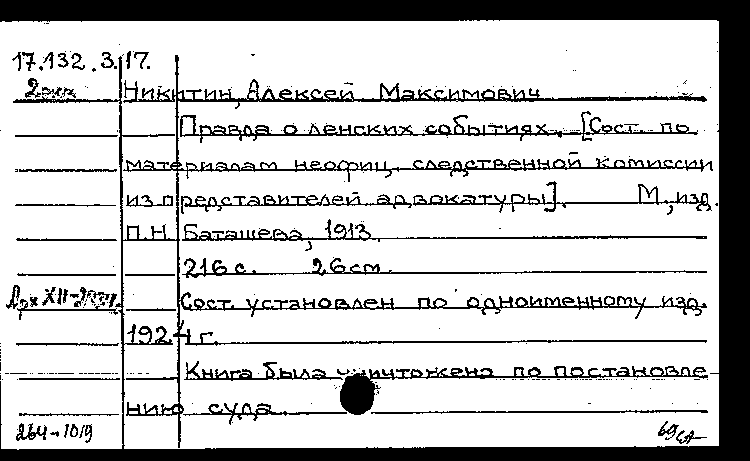 17.132.3.17.
2экз
Никитин, Алексей Максимович
Правда о ленских событиях. [Сост. по
материалам неофиц. следственной комиссии
из представителей адвокатуры]. М., изд.
П.Н. Баташева, 1913.
216 с. 26 см.
Сост. установлен по одноименному изд.
1924 г.
Книга была уничтожена по постановле
нию суда.
264-10/9